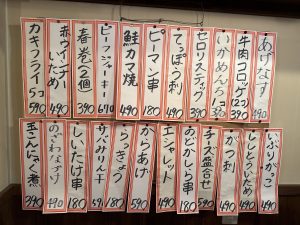 あげなす 490
牛肉コロッケ(2コ) 390
いかめんち1コ 390
セロリスティック 390
てっぽう刺 490
ピーマン串 180
鮭カマ焼 490
ビーフジャーキー 670
春巻2個 390
赤ウインナーいため 490
カキフライ5コ 590
いぶりがっこ 390
ししとういため 490
かつ刺 490
チーズ盛合せ 590
おどかしら串 180
エシャレット 490
からあげ 590
らっきょう
サバみりん干
しいたけ串 180
のざわなづけ 490
玉こんにゃく煮 390